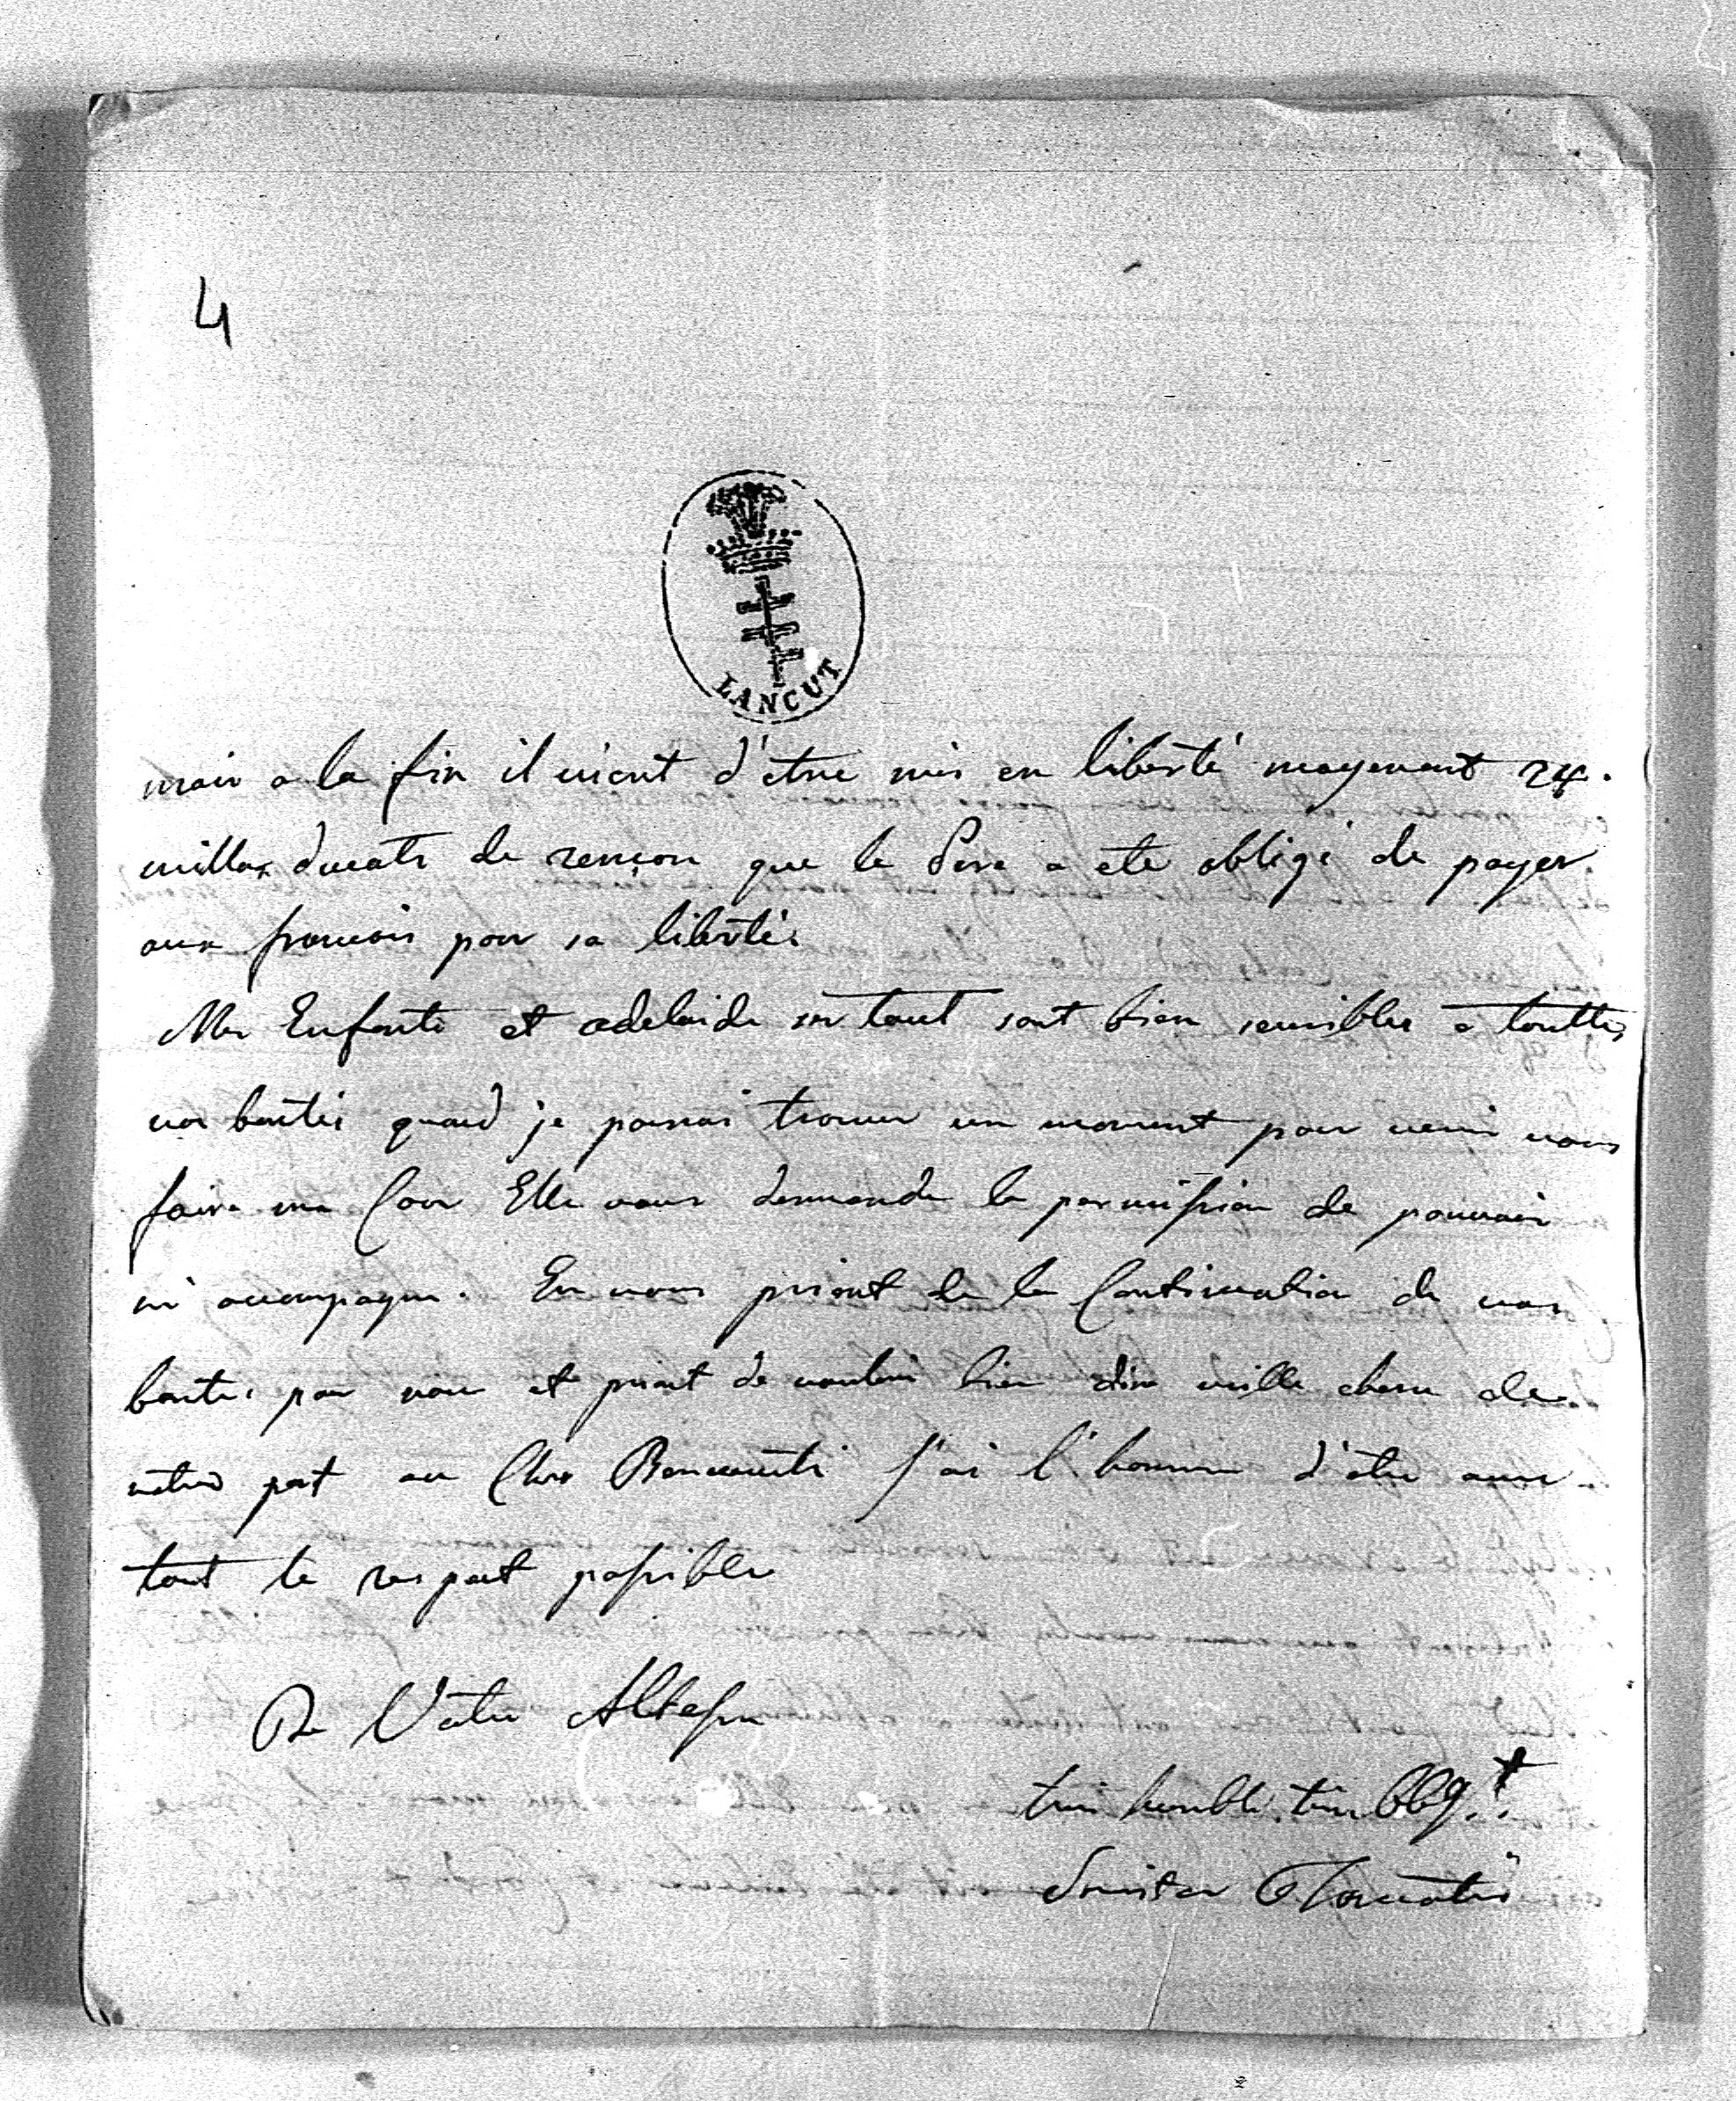 4
LANCUT
mais a la fin il vient d'etre mis en liberté moyenant 24.
milles ducats de rençon que le Pere a ete obligé de payer
aux francois pour sa liberté.
Mes Enfants et adelaide sur tout sont bien sensibles a touttes
vos bontés quand je pourai trouver un moment pour venir vous
faire ma Cour Elle vous demande la permission de pouvoir
m'accompagner. En vous priant de la Continuation de vos
bontés pour nous et priant de vouloir bien dire mille choses de
notre part au Cher J'ai l'honneur d'etre avec
tout le respect possible
De Votre Altesse
tres humble tres Obbgt